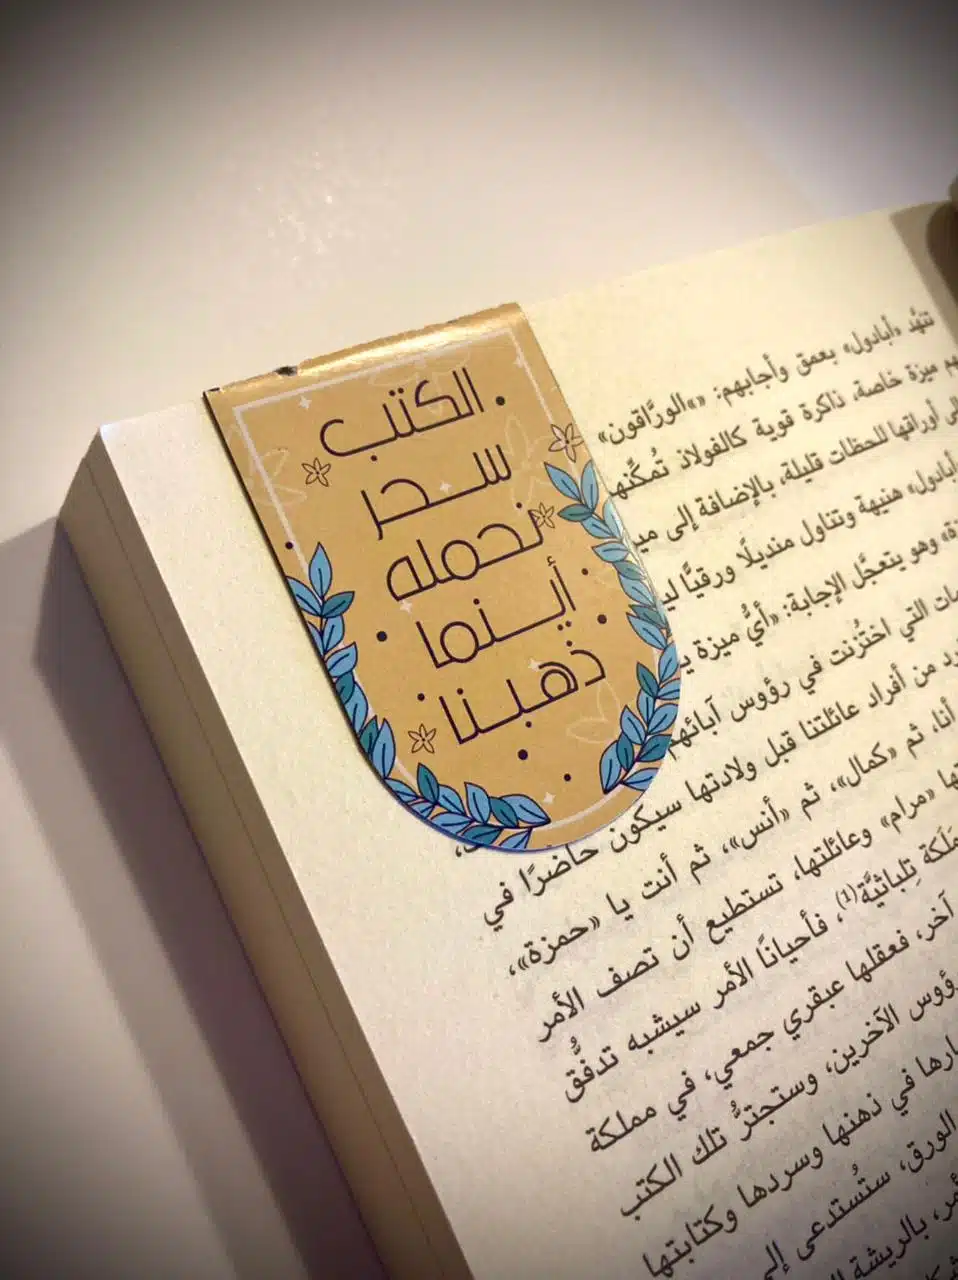 الكتب
سحر
نحمله
أينما
ذهبنا
تنهَّد «أبادول» بعمق وأجابهم: «»الورَّاقون»
ميزة خاصة، ذاكرة قوية كالفولاذ تُمكِّنهم
أوراقها للحظات قليلة، بالإضافة إلى
أبادول» هنيهة وتناول منديلًا ورقيًّا
وهو يتعجَّل الإجابة: «أيُّ ميزة
التي اختُزنت في رؤوس آبائهم
من أفراد عائلتنا قبل ولادتها سيكون حاضرًا في
أنا، ثم «كمال»، ثم «أنس»، ثم أنت يا «حمزة»،
«مرام» وعائلتها، تستطيع أن تصف الأمر
مَلَكة تِلباثيَّة(1)، فأحيانًا الأمر سيشبه تدفُّق
آخر، فعقلها عبقري جمعي، في مملكة
رؤوس الآخرين، وستجترُّ تلك الكتب
في ذهنها وسردها وكتابتها
الورق، ستُستدعى إلى
بالريشة